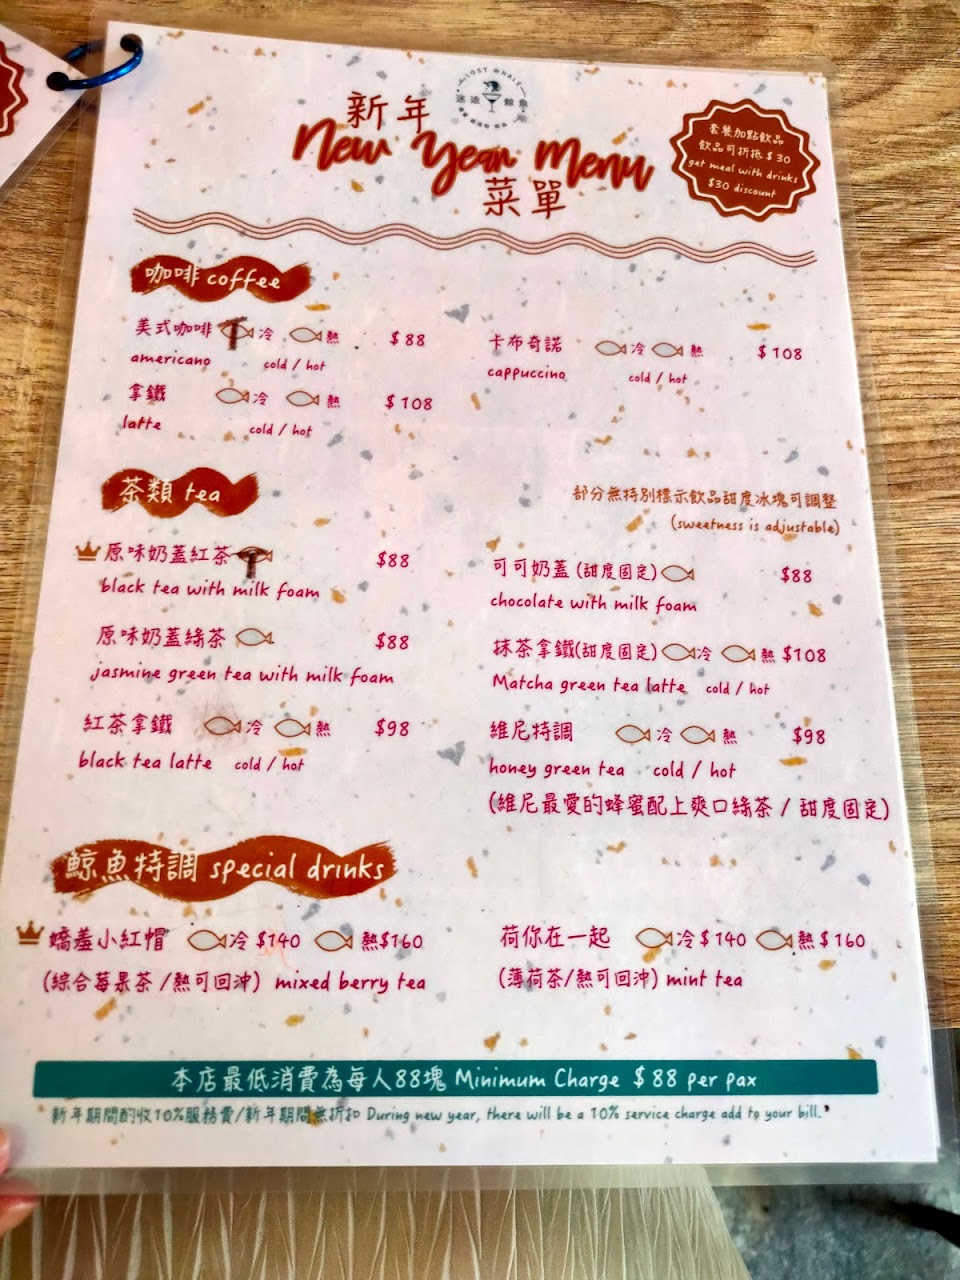 LOST WHALE
迷途鯨魚
新年
New Year Menu
菜單
套餐加點飲品
飲品可折抵$30
get meal with drinks
$30 discount
咖啡 coffee
美式咖啡 冷 熱 $88
americano cold / hot
卡布奇諾 冷 熱 $108
cappuccino cold / hot
拿鐵 冷 熱 $108
latte cold / hot
茶類 tea
部分無特別標示飲品甜度冰塊可調整
(sweetness is adjustable)
原味奶蓋紅茶 $88
black tea with milk foam
可可奶蓋(甜度固定) $88
chocolate with milk foam
原味奶蓋綠茶 $88
jasmine green tea with milk foam
抹茶拿鐵(甜度固定) 冷 熱 $108
Matcha green tea latte cold / hot
紅茶拿鐵 冷 熱 $98
black tea latte cold / hot
維尼特調 冷 熱 $98
honey green tea cold / hot
(維尼最愛的蜂蜜配上爽口綠茶 / 甜度固定)
鯨魚特調 special drinks
嬌羞小紅帽 冷$140 熱$160
(綜合莓果茶/熱可回沖) mixed berry tea
荷你在一起 冷$140 熱$160
(薄荷茶/熱可回沖) mint tea
本店最低消費為每人88塊 Minimum Charge $88 per pax
新年期間酌收10%服務費/新年期間無折扣 During new year, there will be a 10% service charge add to your bill.